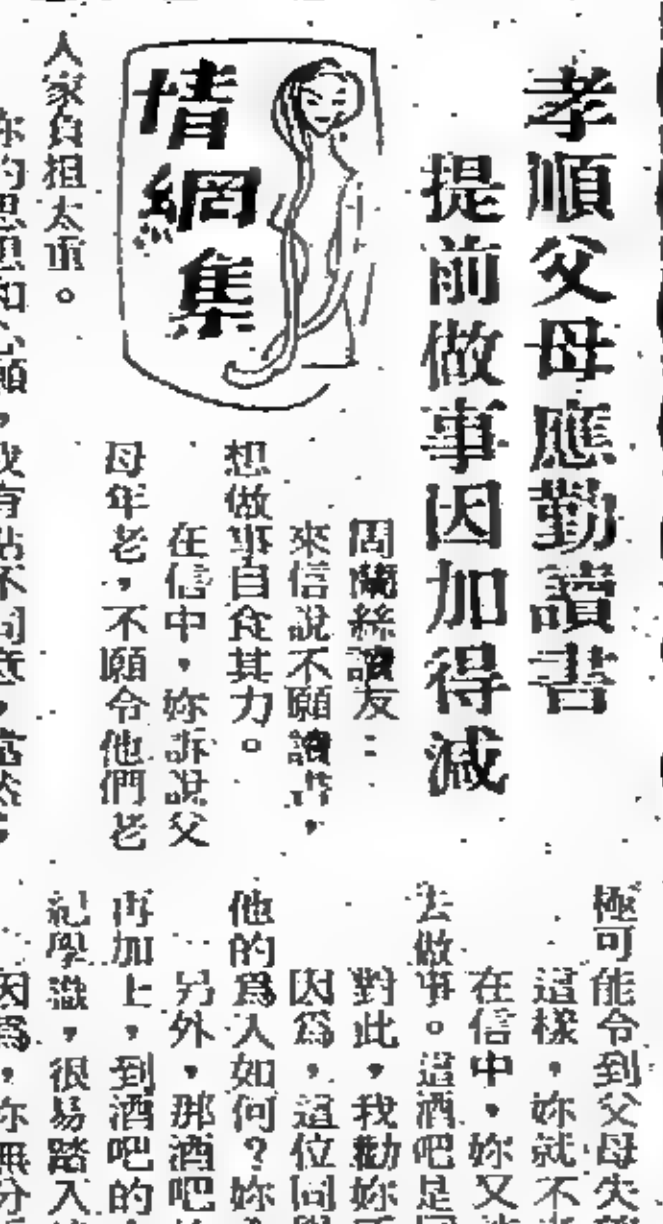 孝順父母應勤讀書
提前做事因加得減
情網集
周蘭絲讀友：
來信說不願讀書，
想做事自食其力。
在信中，妳訴說父
母年老，不願令他們老
人家負担太重。
你的思想和心願，我有點不同意，當然，
極可能令到父母失
這樣，妳就不
在信中，妳又
去做事。這酒吧是
對此，我勸妳
因為，這位同學
他的為人如何？妳
另外，那酒吧
再加上，到酒吧的
紀學識，很易踏入
因為，你無分